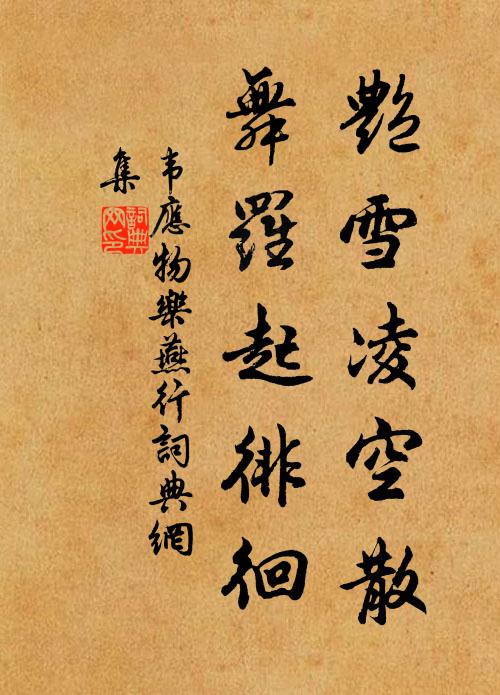 艷雪凌空散
舞羅起徘徊
韦應物樂燕行詞典網
集
詞典
网印